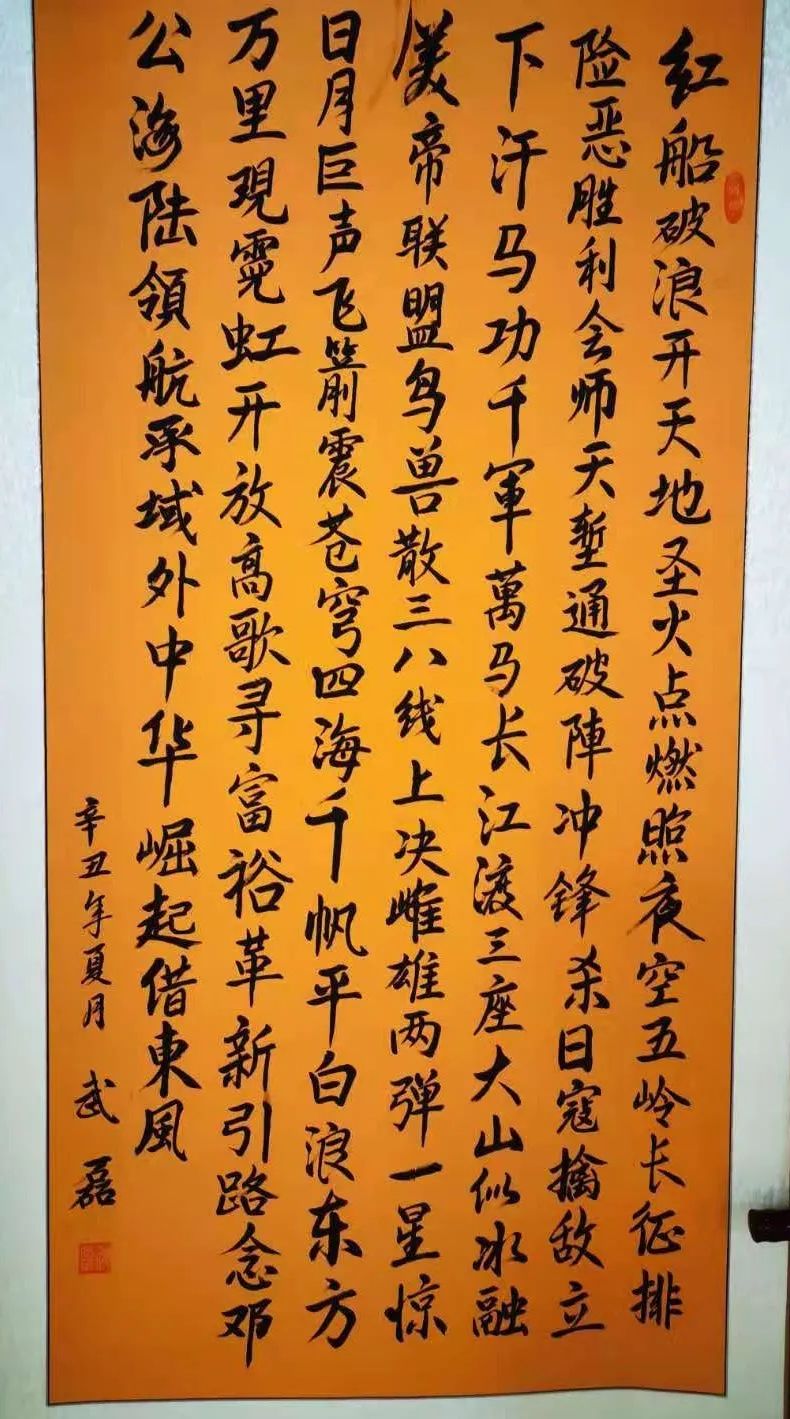 红船破浪开天地圣火点燃照夜空五岭长征排
险恶胜利会师天堑通破陣冲锋杀日寇擒敌立
下汗马功千軍萬马长江渡三座大山似冰融
美帝联盟鸟兽散三八线上决雌雄两弹一星惊
日月巨声飞箭震苍穹四海千帆平白浪东方
万里現霓虹开放高歌寻富裕革新引路念邓
公海陆領航承域外中华崛起借東風
辛丑年夏月 武磊